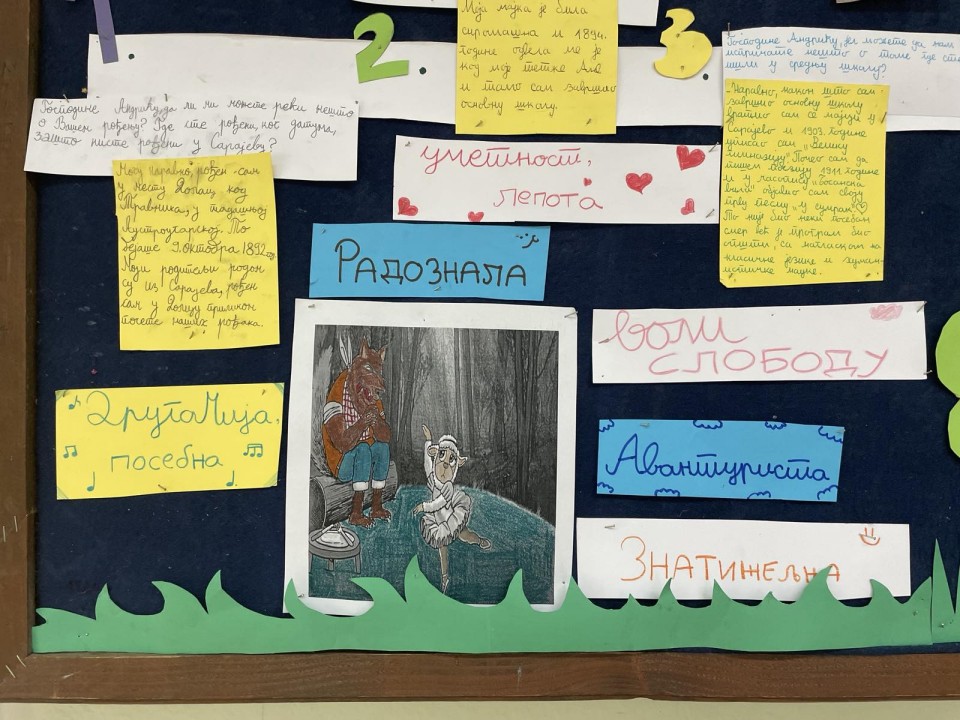 1
2
3
Господине Андрићу, да ли ми можете рећи нешто
о Вашем рођењу? Где сте рођени, ког датума,
зашто нисте рођени у Сарајеву?
Могу наравно, рођен сам
у месту Долац, код
Травника, у тадашњој
Аустроугарској. То
бејаше 9. октобра 1892.
Моји родитељи родом
су из Сарајева, рођен
сам у Долцу приликом
посете наших рођака.
Моја мајка је била
сиромашна и 1894.
године одвела ме је
код моје тетке Ане
и тамо сам завршио
основну школу.
Господине Андрићу, можете да нам
испричате нешто о томе где сте
ишли у средњу школу?
Наравно, након што сам
завршио основну школу
вратио сам се мајци у
Сарајево и 1903. године
уписао сам „Велику
гимназију". Почео сам да
пишем поезију 1911. године
и у часопису „Босанска
вила" објавио сам своју
прву песму „У сумрак".
То није био неки посебан
смер већ је програм био
општи, са нагласком на
класичне језике и хуман-
истичке науке.
уметност,
лепота
Радознала
воли
слободу
Другачија,
посебна
Авантуриста
Знатижељна